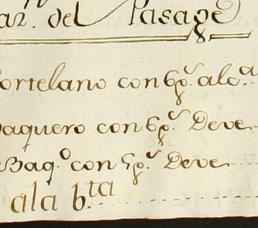 ar. del Pasage
ortelano con 6p.ˢ alc.ᵃ
aquero con 6p.ˢ Deve
Baq.º con 5p.ˢ Deve
ala b.ᵗᵃ